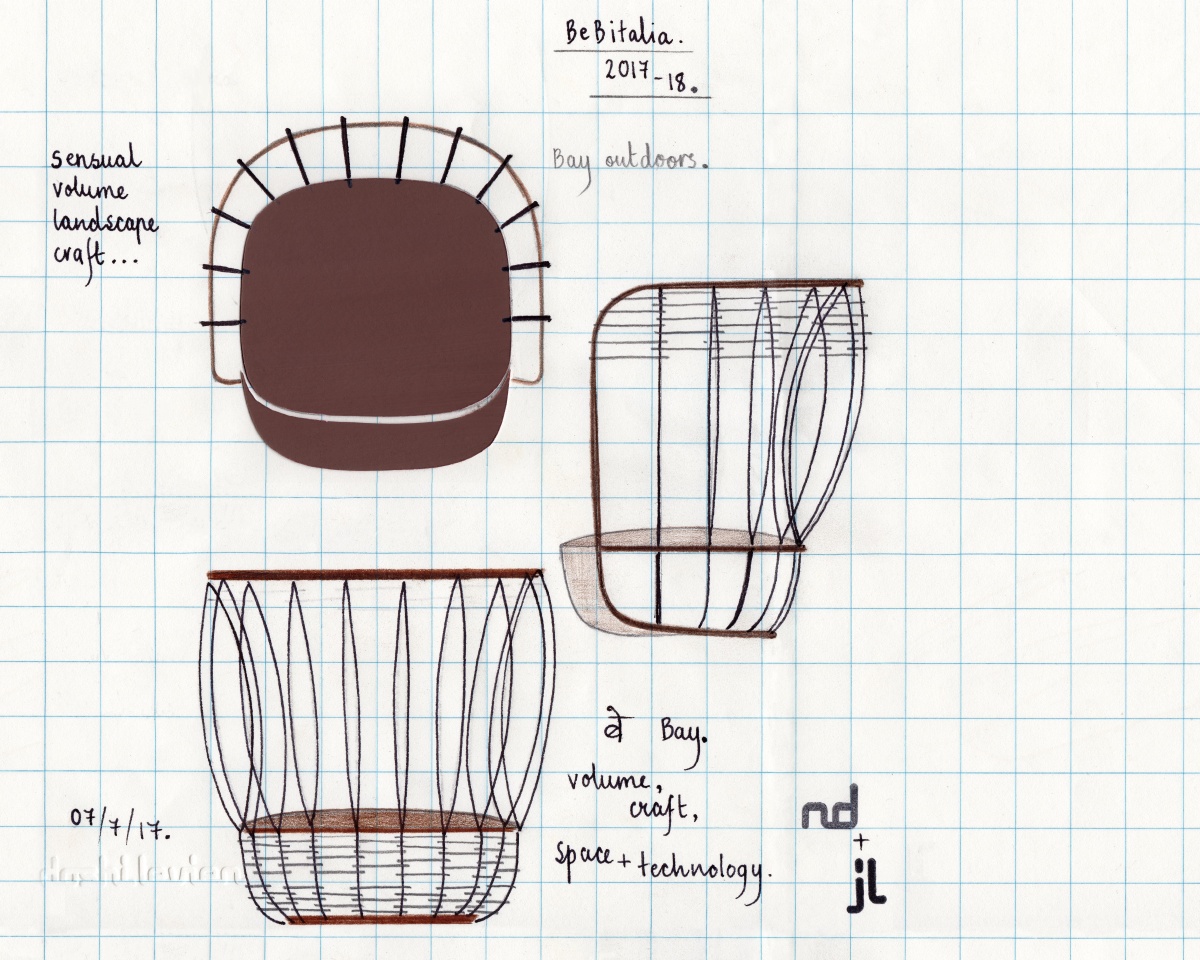 BeBitalia.
2017-18.
Bay outdoors.
sensual
volume
landscape
craft...
बे Bay.
volume,
craft,
space + technology.
07/7/17.
nd
+
jl